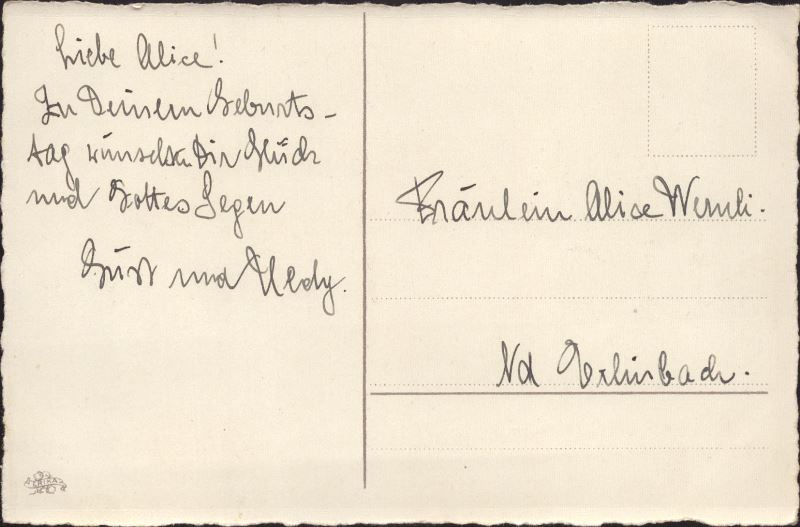 Liebe Alice!
Zu Deinem Geburts-
tag wünschen Dir Glück
und Gottes Segen
Gust und Hedy.
Fräulein Alice Wernli.
Nd Erlinsbach.